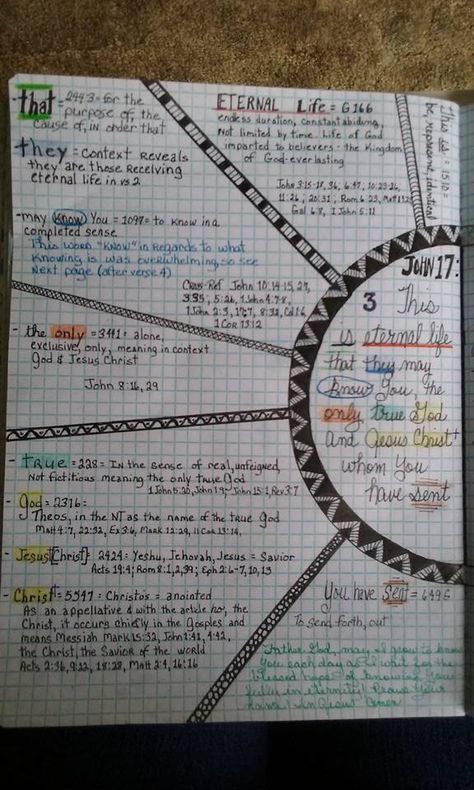 - that = 2443 = for the
purpose of, the
cause of, IN order that
they = context Reveals
they are those Receiving
eternal life in vs 2
ETERNAL Life = G166
endless duration, constant abiding,
Not limited by time. Life of God
imparted to believers - the Kingdom
of God - everlasting
John 3:15-18, 36, 6:47, 10:23-26,
11:26, 20:31, Rom 6:23,
Gal 6:8, 1 John 5:11
This is = 1510 =
be, represent, identical
- may Know You = 1097 = to Know in a
completed sense
This word "KNOW" in Regards to what
Knowing is was overwhelming, so see
Next page (after verse 4)
Cross-Ref John 10:14-15, 27,
3:35, 5:26, 1 John 4:7-8,
1 John 2:3, 17:7, 8:32, Col 1:6
1 Cor 13:12
- the only = 3441 = alone,
exclusive, only, meaning in context
God & Jesus Christ
John 8:16, 29
JOHN 17:
3 This
is eternal life
that they may
Know You, the
only true God
and Jesus Christ
whom You
have sent
- true = 228 = IN the sense of real, unfeigned,
Not fictitious meaning the only true God
1 John 5:20, John 1:9, John 15:1, Rev 3:7
- God = 2316 =
Theos, in the NT as the name of the true God
Matt 4:7, 22:32, Ex 3:6, Mark 12:29, 11 Cor 13:14,
- Jesus [Christ] = 2424 = Yeshu, Jehovah, Jesus = Savior
Acts 19:4; Rom 8:1, 2, 39; Eph 2:6-7, 10, 13
- Christ = 5547 = Christos = anointed
As an appellative & with the article ho, the
Christ, it occurs chiefly in the Gosples and
means Messiah Mark 15:32, John 1:41, 4:42,
the Christ, the Savior of the world
Acts 2:36, 9:22, 18:28, Matt 2:4, 16:16
You have sent = 649 G
To send forth, out
Father God, may I grow to know
You each day as I wait for the
blessed hope of knowing You
fully in eternity! Praise Your
name! In Jesus Amen